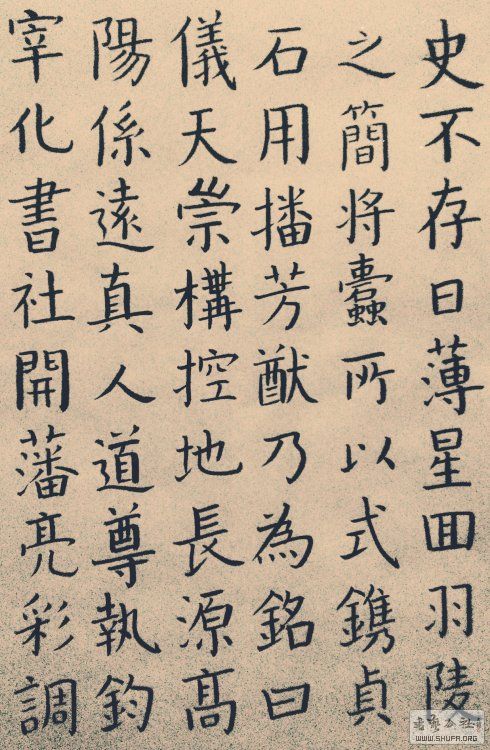 史不存日薄星囬羽陵
之簡將蠹所以式鐫貞
石用播芳猷乃為銘曰
儀天崇構控地長源髙
陽係遠真人道尊執鈞
宰化書社開藩亮彩調
WWW.SHUFA.ORG